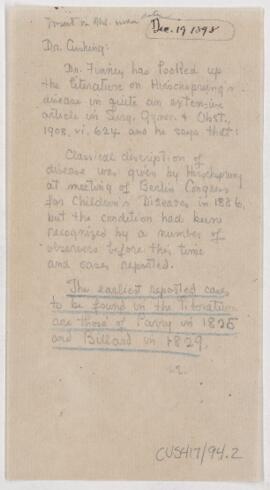 Dec. 19 1898
Dr. Cushing:
Dr. Finney has looked up
the literature on Hirschsprung's
disease in quite an extensive
article in Surg. Gynec. & Obst.,
1908, vi. 624 and he says that:
Classical description of
disease was given by Hirschsprung
at meeting of Berlin Congress
for Children's Diseases in 1886,
but the condition had been
recognized by a number of
observers before this time
and cases reported.
The earliest reported cases
to be found in the literature
are those of Parry in 1825
and Billard in 1829.
CUS417/94.2